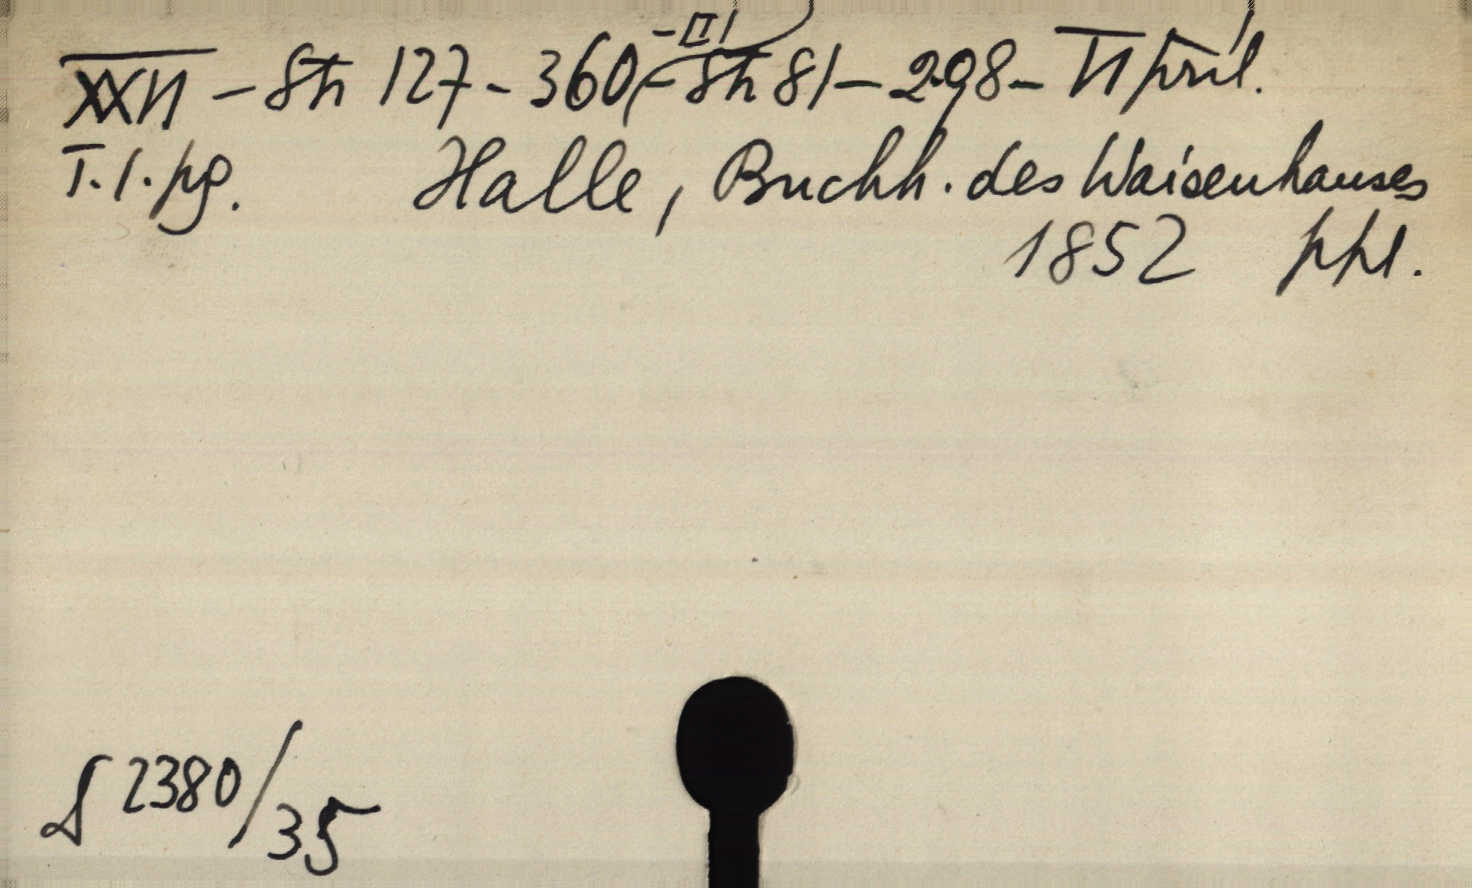 XXII - Sh 127 - 360 (- II/ Sh 81 - 298 - April.
T. 1. pg. Halle, Buchh. des Waisenhauses
1852 ppl.
2380/35